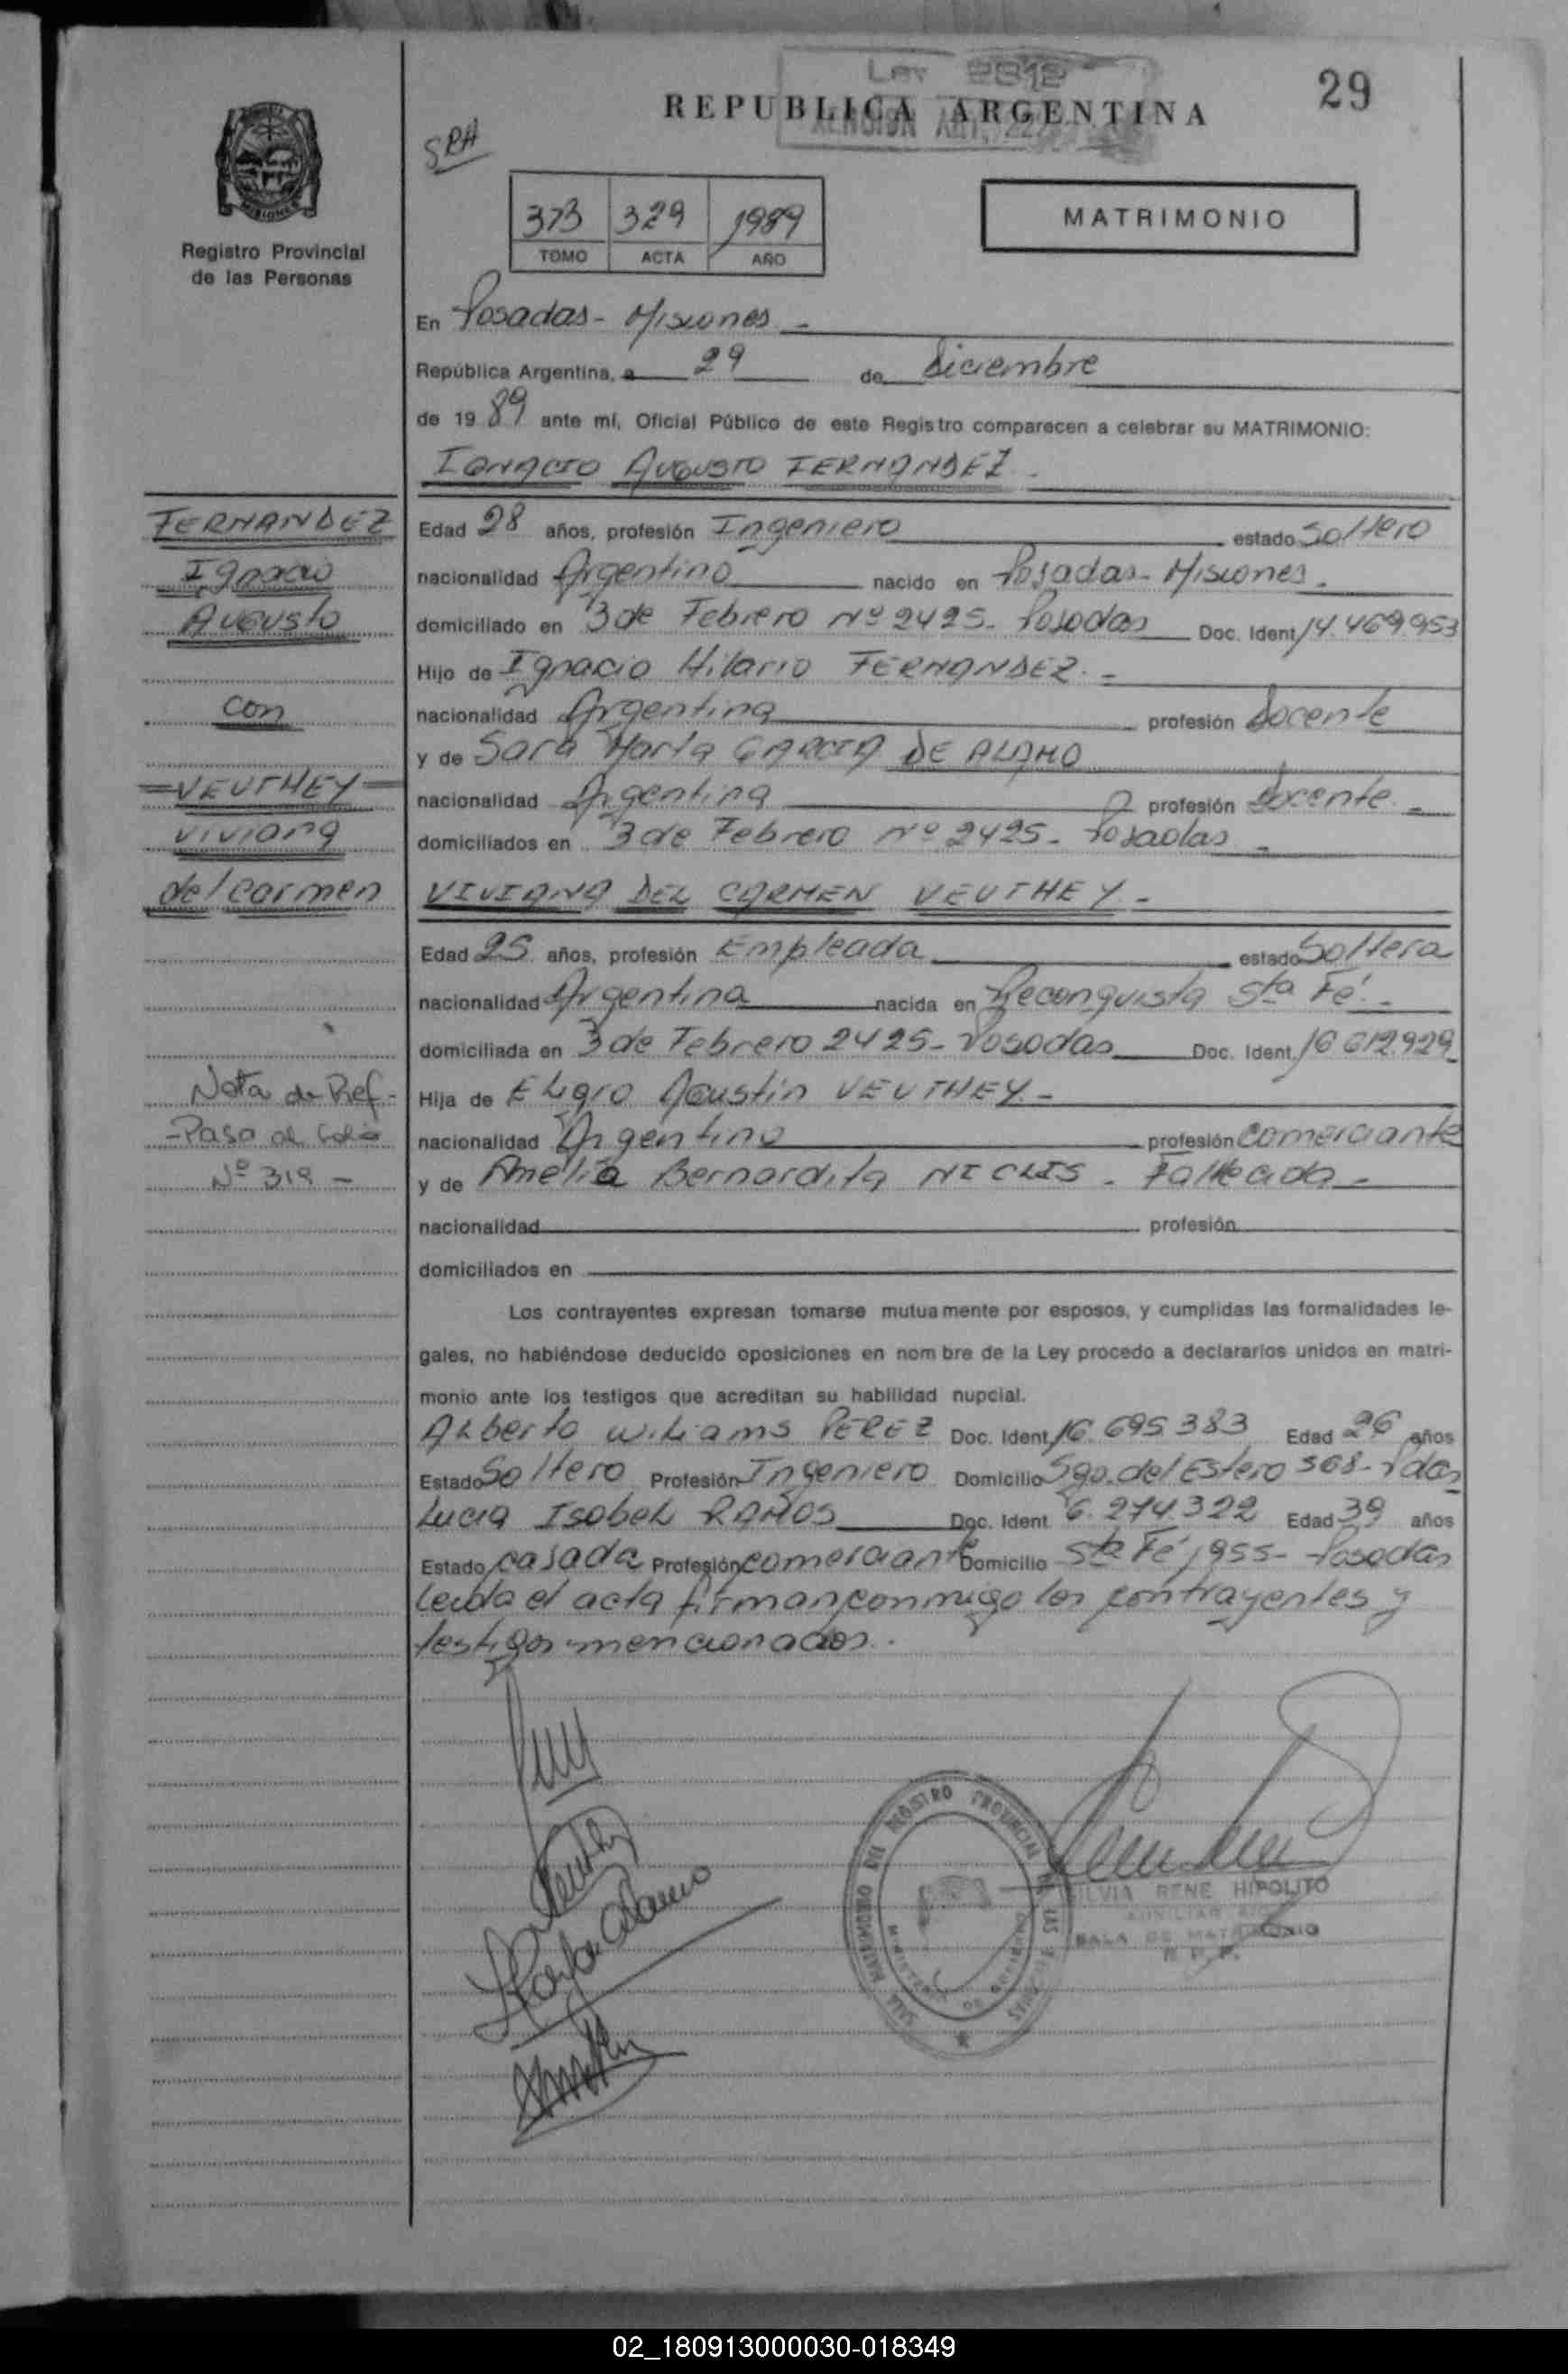 Ley 2812
REPUBLICA ARGENTINA
29
SRH
MISIONES
Registro Provincial
de las Personas
373 329 1989
TOMO ACTA AÑO
MATRIMONIO
En Posadas - Misiones -
República Argentina, a 29 de Diciembre
de 19 89 ante mí, Oficial Público de este Registro comparecen a celebrar su MATRIMONIO:
IGNACIO AUGUSTO FERNANDEZ -
FERNANDEZ
Ignacio
Augusto
con
=VEUTHEY=
Viviana
del Carmen
Nota de Ref-
-Pasa al Folio
Nº 319 -
Edad 28 años, profesión Ingeniero estado Soltero
nacionalidad Argentino nacido en Posadas - Misiones -
domiciliado en 3 de Febrero Nº 2425 - Posadas Doc. Ident. 14.469.953
Hijo de Ignacio Hilario FERNANDEZ -
nacionalidad Argentina profesión Docente
y de Sara Marta GARCIA DE ALAMO
nacionalidad Argentina profesión Docente -
domiciliados en 3 de Febrero Nº 2425 - Posadas -
VIVIANA DEL CARMEN VEUTHEY -
Edad 25 años, profesión Empleada estado Soltera
nacionalidad Argentina nacida en Reconquista Sta Fé -
domiciliada en 3 de Febrero 2425 - Posadas Doc. Ident. 16.612.929
Hija de Eligio Agustín VEUTHEY -
nacionalidad Argentino profesión comerciante
y de Amelia Bernardita NICLIS - Fallecida -
nacionalidad profesión
domiciliados en
Los contrayentes expresan tomarse mutuamente por esposos, y cumplidas las formalidades le-
gales, no habiéndose deducido oposiciones en nombre de la Ley procedo a declararlos unidos en matri-
monio ante los testigos que acreditan su habilidad nupcial.
Alberto Wiliams PEREZ Doc. Ident. 16.695.383 Edad 26 años
Estado Soltero Profesión Ingeniero Domicilio Sgo. del Estero 568 - Pdas
Lucia Isabel RAMOS Doc. Ident. 6.274.322 Edad 39 años
Estado casada Profesión comerciante Domicilio Sta Fé 1955 - Posadas
Leida el acta firman conmigo los contrayentes y
testigos mencionados.
SALA MATRIMONIO DEL REGISTRO PROVINCIAL DE LAS PERSONAS
SILVIA RENE HIPOLITO
AUXILIAR
SALA DE MATRIMONIO
R. P. P.
02_180913000030-018349